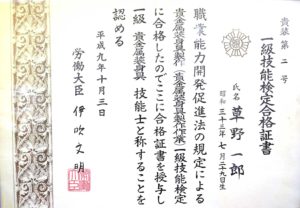 貴装 第二号
一級技能検定合格証書
氏名 草野一郎
昭和三十三年七月二十九日生
職業能力開発促進法の規定による
貴金属装身具製作(貴金属装身具製作作業)一級技能検定
に合格したのでここに合格証書を授与し
一級 貴金属装身具 技能士と称することを
認める
平成九年十月三日
労働大臣 伊吹文明